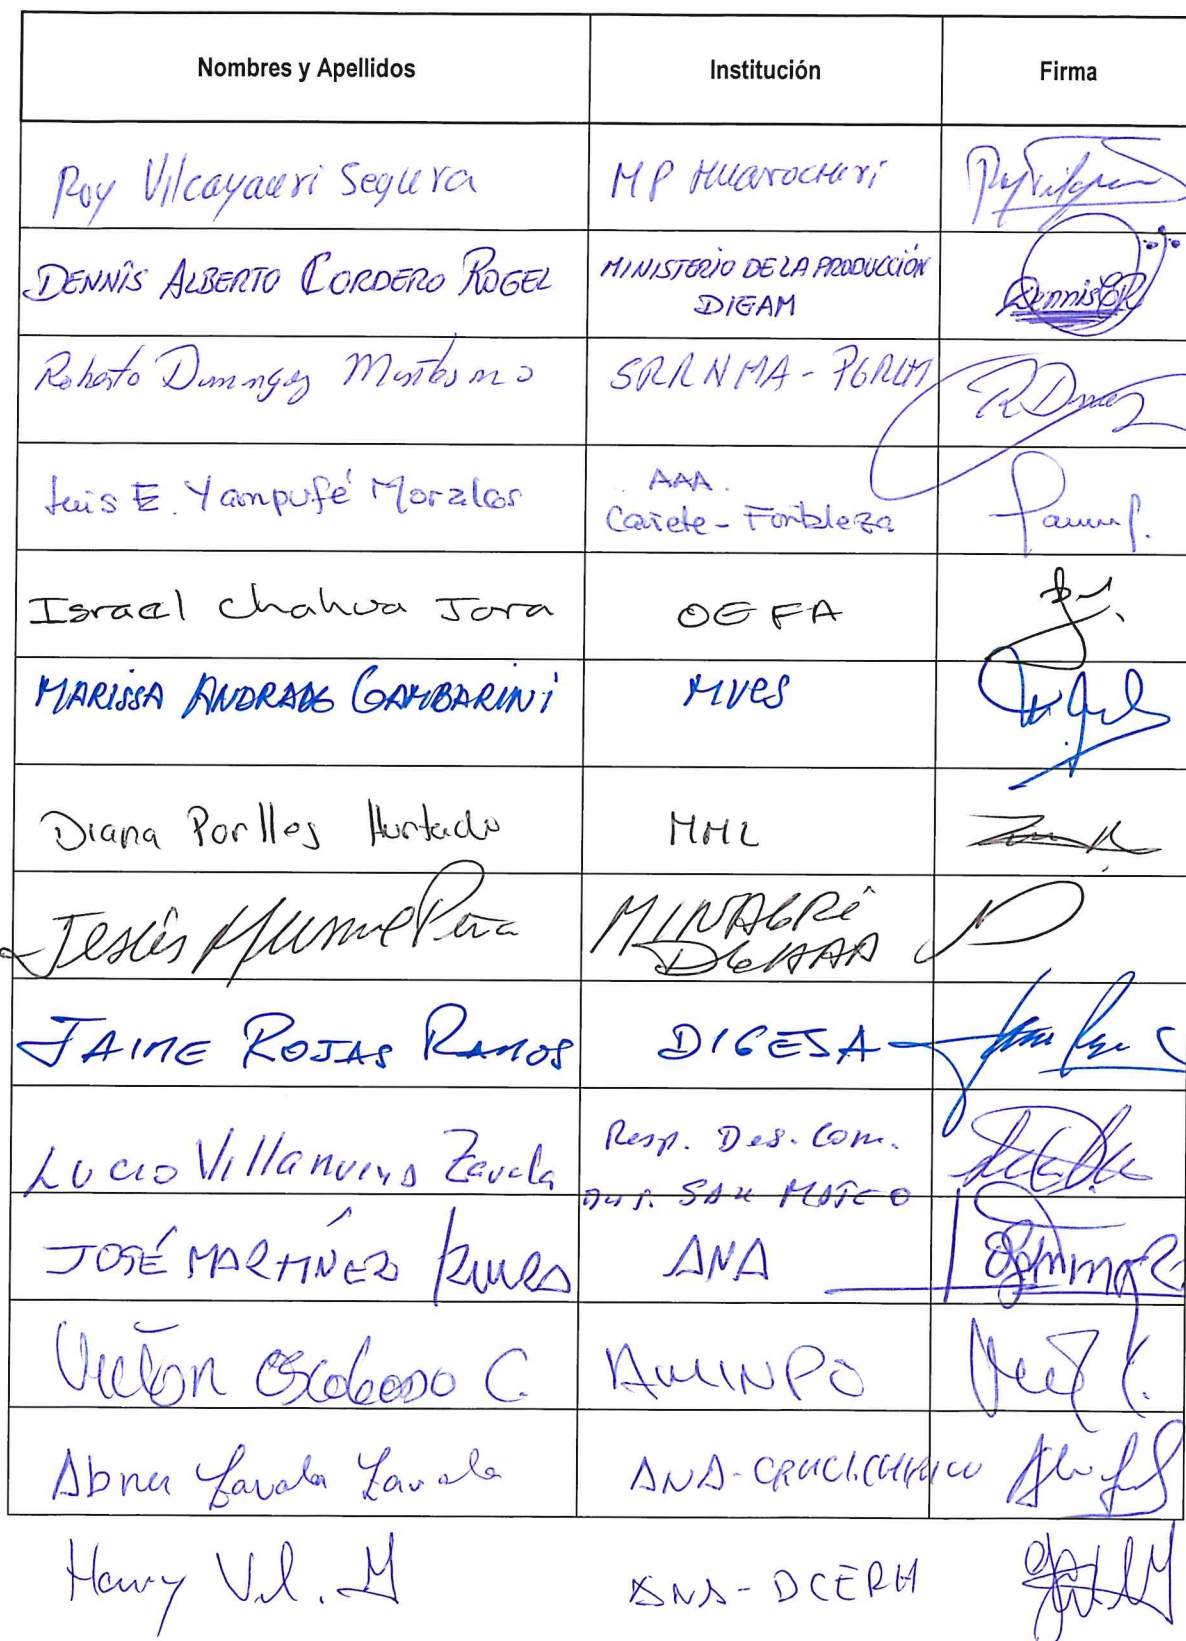 Nombres y Apellidos Institución Firma
Roy Vilcayauri Segura MP Huarochiri
DENNIS ALBERTO CORDERO ROGEL MINISTERIO DE LA PRODUCCIÓN
DIGAM DennisCR
Roberto Dominguez SRRNMA - PGRLM
Luis E. Yampufé Morales AAA.
Cañete - Fortaleza
Israel Chahua Jara OEFA
MARISSA ANDRADE GAMBARINI MVES
Diana Porlles Hurtado MML
Jesús Peña MINAGRI
JAIME ROJAS RAMOS DIGESA
Lucio Villanueva Zavala Resp. Des. Com.
SAN MATEO
JOSÉ MARTÍNEZ ANA
Victor Escobedo C.
Abner Zavala Zavala ANA-
Harry Vil. M ANA-DCERH